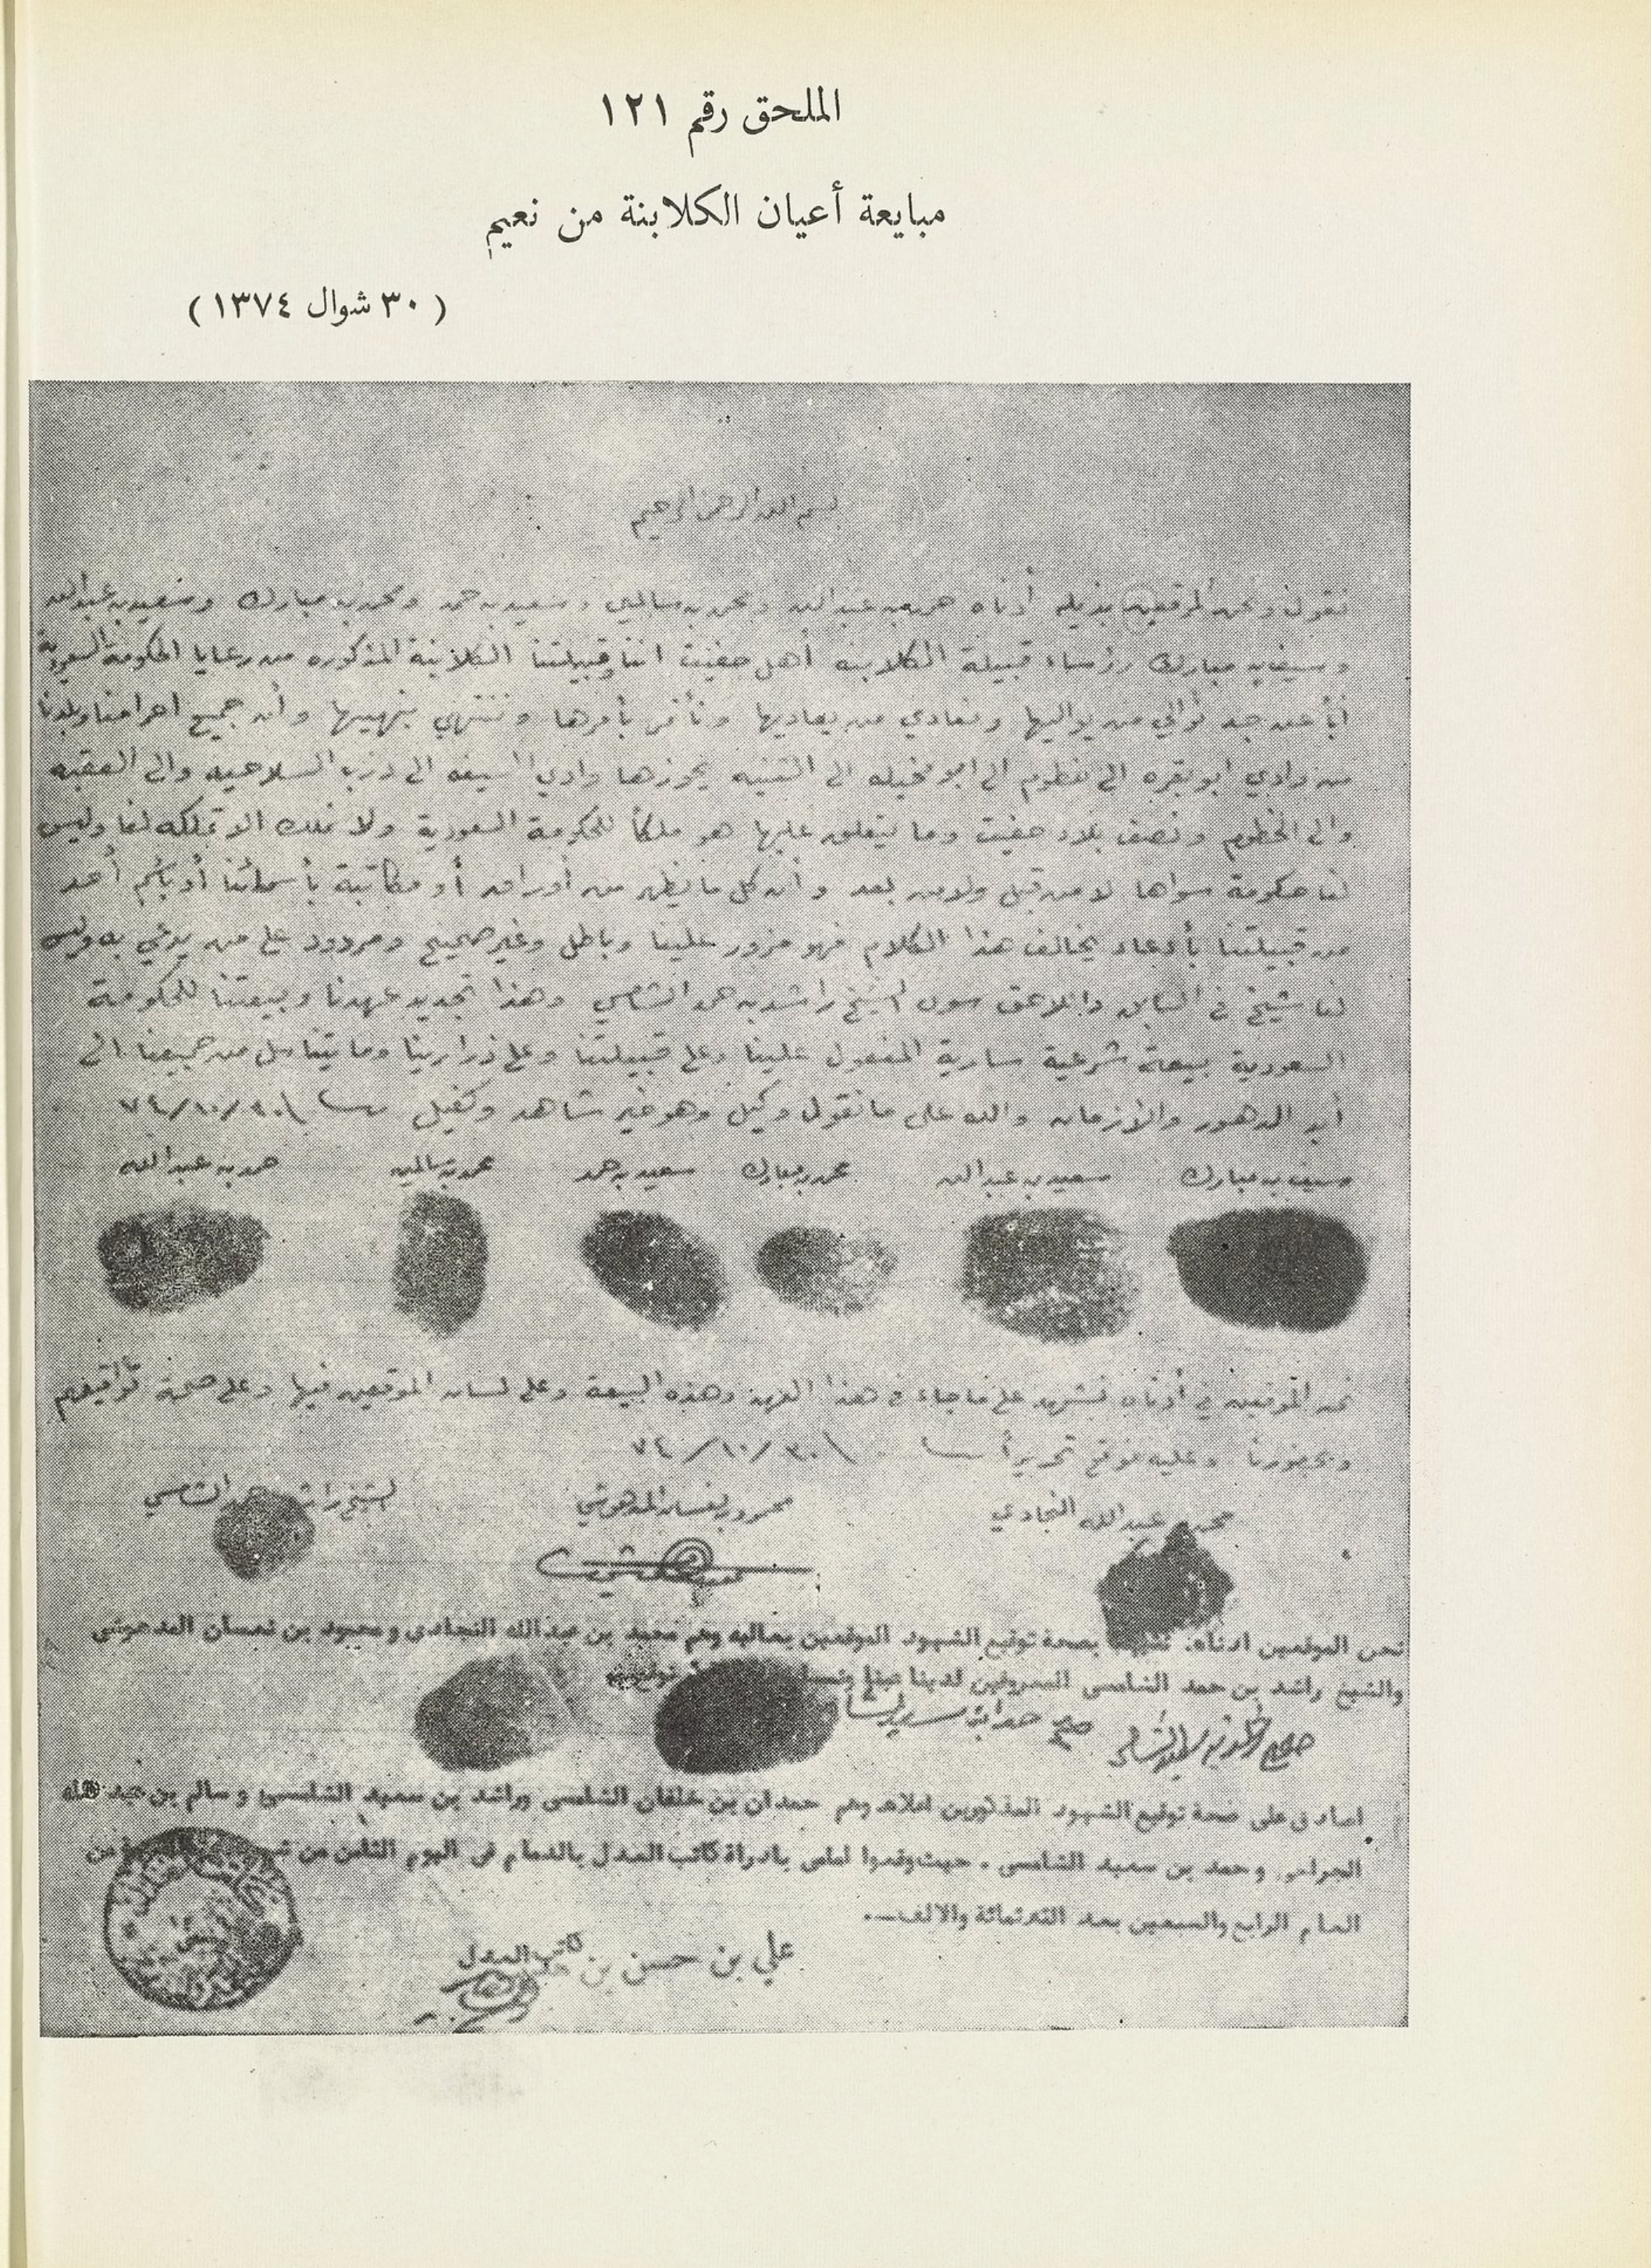 الملحق رقم ١٢١
مبايعة أعيان الكلابنة من نعيم
( ٣٠ شوال ١٣٧٤ )
بسم الله الرحمن الرحيم
نقول ونحن الموقعين بذيله أدناه حمد بن عبدالله ومحمد بن سالمين وسعيد بن حمد ومحمد بن مبارك وسعيد بن عبدالله
وسيف بن مبارك رؤساء قبيلة الكلابنه أهل حفيت اننا وقبيلتنا الكلابنة المذكوره من رعايا الحكومة السعودية
أباً عن جد نوالي من يواليها ونعادي من يعاديها ونأتمر بأمرها وننتهي بنهيها وأن جميع احرامنا وبلدنا
من وادي ابو بقره الى الى ابو نخيله الى الثنيه يحوزها وادي الى درب والى العقبه
والى الخطوم ونصف بلاد حفيت وما يتعلق عليها هو ملكاً للحكومة السعودية ولا نملك الا تملكه لنا وليس
لنا حكومة سواها لا من قبل ولا من بعد وأن كل ما يظهر من أوراق أو مكاتبة بأسمائنا أو بأسم أحد
من قبيلتنا بأدعاء يخالف هذا الكلام فهو مزور علينا وباطل وغير صحيح ومردود على من يدعي به وليس
لنا شيخ في السابق واللاحق سوى الشيخ راشد بن حمد الشامسي وهذا تجديد عهدنا وبيعتنا للحكومة
السعودية بيعة شرعية سارية المفعول علينا وعلى قبيلتنا وعلى ذرارينا وما يتناسل من جميعنا الى
أبد الدهور والأزمان والله على ما نقول وكيل وهو خير شاهد وكفيل ٣٠/١٠/٧٤
سيف بن مبارك سعيد بن عبدالله محمد بن مبارك سعيد بن حمد محمد بن سالمين حمد بن عبدالله
نحن الموقعين في أدناه نشهد على ما جاء في هذا العهد وهذه البيعة وعلى لسان الموقعين فيها وعلى صحة تواقيعهم
وبحضورنا وعليه نوقع تحريراً ٣٠/١٠/٧٤
محمد بن عبدالله النجادي محمود بن نمسان المدهوشي الشيخ راشد بن حمد الشامسي
نحن الموقعين ادناه نشهد بصحة توقيع الشهود الموقعين بعاليه وهم محمد بن عبدالله النجادي ومحمود بن نمسان المدهوشي
والشيخ راشد بن حمد الشامسي المعروفين لدينا عينا
اصادق على صحة توقيع الشهود المذكورين اعلاه وهم حمدان بن خلفان الشامسي وراشد بن سعيد الشامسي وسالم بن عبد الله
وحمد بن سعيد الشامسي . حيث وقعوا امامي بادراة كاتب العدل بالدمام في اليوم الثامن من
العام الرابع والسبعين بعد الثلاثمائة والالف
علي بن حسن بن
كاتب العدل